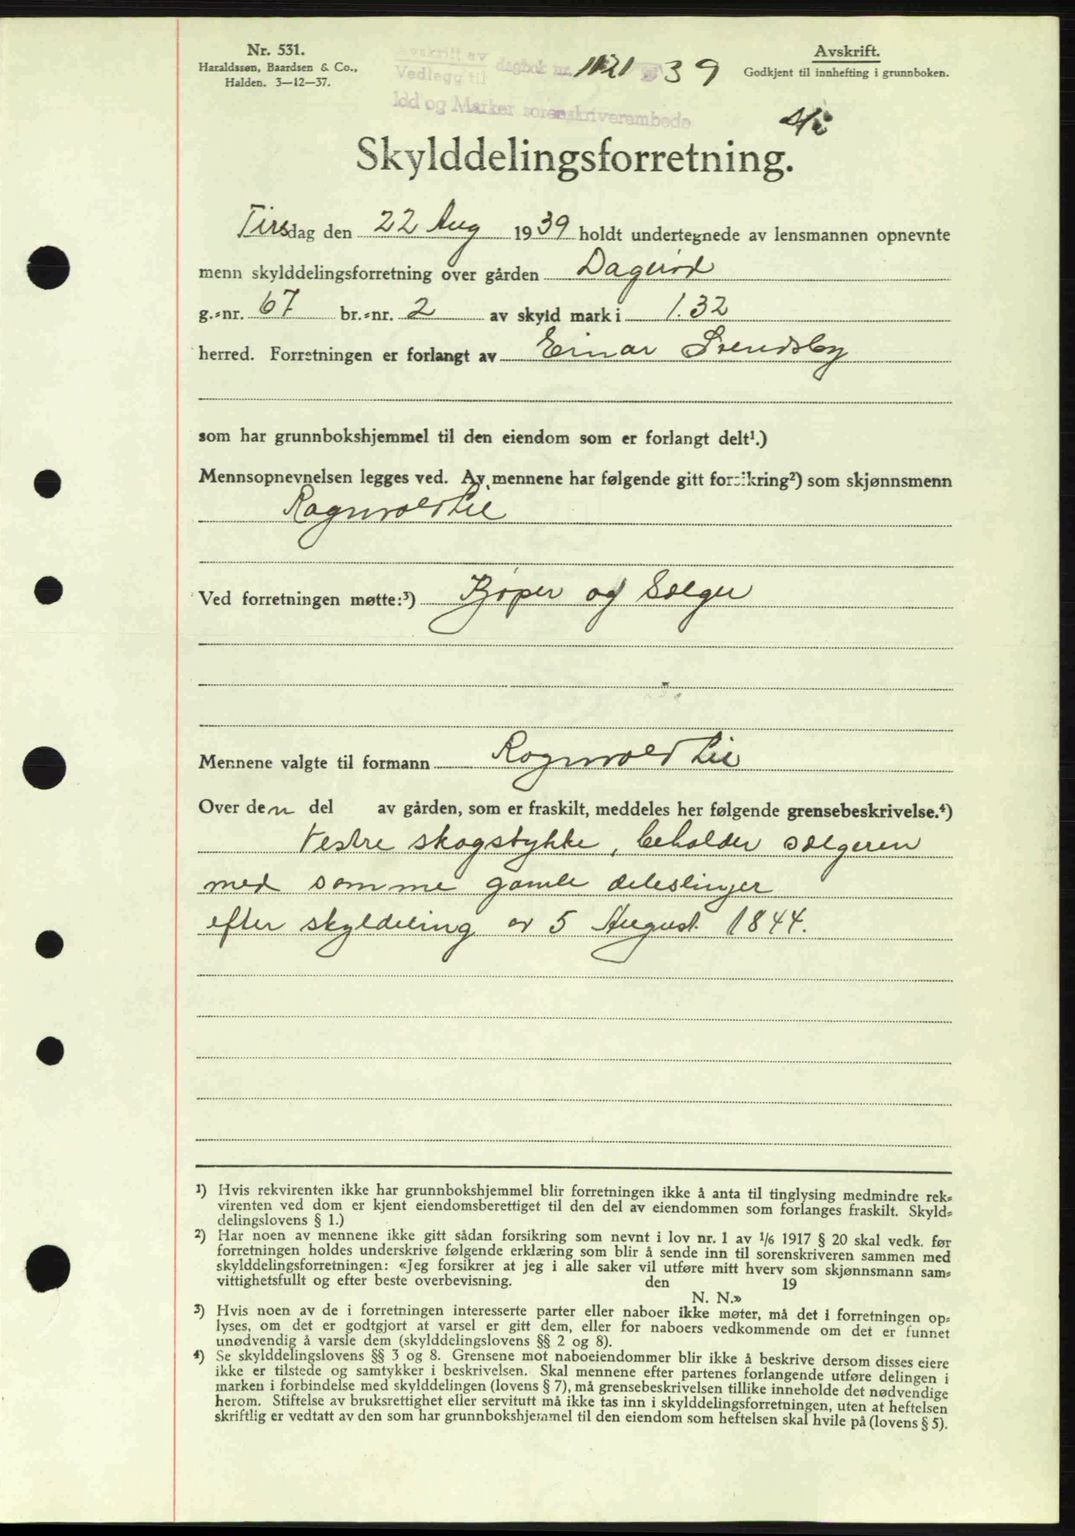 Nr. 531.
Haraldssøn, Baardsen & Co.,
Halden. 3—12—37.
Avskrift av
Vedlegg til dagbok nr. 1121 39
Idd og Marker sorenskriverembede
Avskrift.
Godkjent til innhefting i grunnboken.
Skylddelingsforretning.
Tirsdag den 22 Aug 1939 holdt undertegnede av lensmannen opnevnte
menn skylddelingsforretning over gården Dagsrød
g.=nr. 67 br.=nr. 2 av skyld mark i 1.32
herred. Forretningen er forlangt av Einar Svendsby
som har grunnbokshjemmel til den eiendom som er forlangt delt¹.)
Mennsopnevnelsen legges ved. Av mennene har følgende gitt forsikring²) som skjønnsmenn
Ragnvald Lie
Ved forretningen møtte:³) Kjøper og Selger
Mennene valgte til formann Ragnvald Lie
Over den del av gården, som er fraskilt, meddeles her følgende grensebeskrivelse.⁴)
Vestre skogstykke, beholder selgeren
med samme gamle deleslinjer
efter skyldeling av 5 August 1844.
¹) Hvis rekvirenten ikke har grunnbokshjemmel blir forretningen ikke å anta til tinglysing medmindre rek=
virenten ved dom er kjent eiendomsberettiget til den del av eiendommen som forlanges fraskilt. Skyld=
delingslovens § 1.)
²) Har noen av mennene ikke gitt sådan forsikring som nevnt i lov nr. 1 av 1/6 1917 § 20 skal vedk. før
forretningen holdes underskrive følgende erklæring som blir å sende inn til sorenskriveren sammen med
skylddelingsforretningen: «Jeg forsikrer at jeg i alle saker vil utføre mitt hverv som skjønnsmann sam=
vittighetsfullt og efter beste overbevisning. den 19
N. N.»
³) Hvis noen av de i forretningen interesserte parter eller naboer ikke møter, må det i forretningen op=
lyses, om det er godtgjort at varsel er gitt dem, eller for naboers vedkommende om det er funnet
unødvendig å varsle dem (skylddelingslovens §§ 2 og 8).
⁴) Se skylddelingslovens §§ 3 og 8. Grensene mot naboeiendommer blir ikke å beskrive dersom disses eiere
ikke er tilstede og samtykker i beskrivelsen. Skal mennene efter partenes forlangende utføre delingen i
marken i forbindelse med skylddelingen (lovens § 7), må grensebeskrivelsen tillike inneholde det nødvendige
herom. Stiftelse av bruksrettighet eller servitutt må ikke tas inn i skylddelingsforretningen, uten at heftelsen
skriftlig er vedtatt av den som har grunnbokshjemmel til den eiendom som heftelsen skal hvile på (lovens § 5).